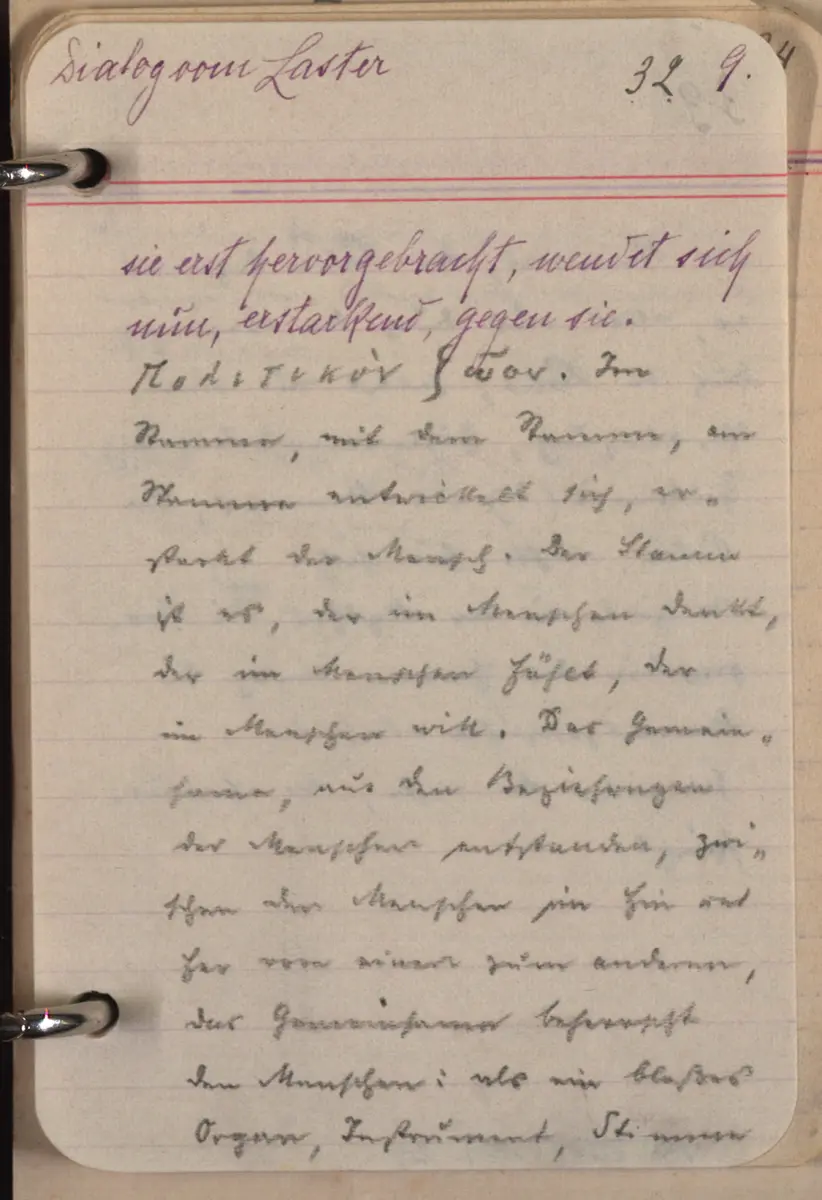 Dialog vom Laster 32 9.
sie erst hervorgebracht, wendet sich
nun, erstarkend, gegen sie.
Πολιτικὸν ζωον. Im
Stamme, mit dem Stamme, am
Stamme entwickelt sich, er„
starkt der Mensch. Der Stamm
ist es, der im Menschen denkt,
der im Menschen fühlt, der
im Menschen will. Das Gemein„
same, aus den Beziehungen
der Menschen entstanden, zwi„
schen den Menschen im Hin und
Her vom einen zum anderen,
das Gemeinsame beherrscht
den Menschen: als ein bloßes
Organ, Instrument, Stimme